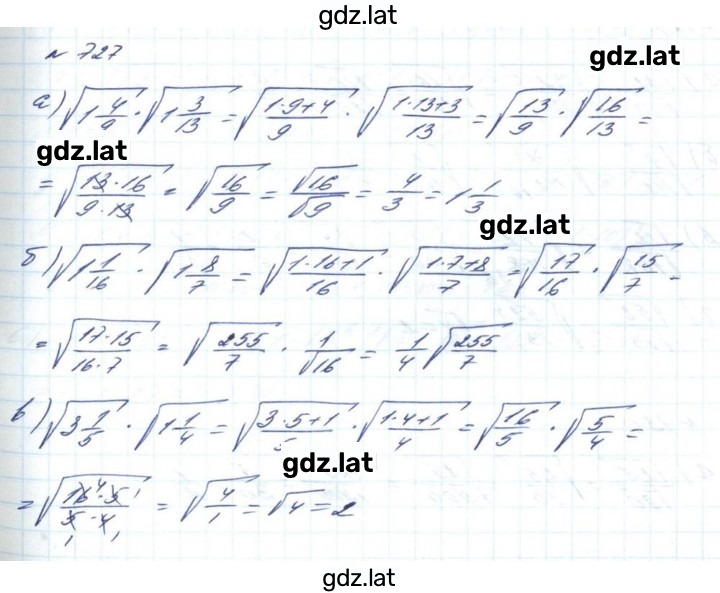 gdz.lat
№ 727
gdz.lat
а) √(1 4/9) · √(1 3/13) = √((1·9+4)/9) · √((1·13+3)/13) = √(13/9) · √(16/13) =
gdz.lat
= √((13·16)/(9·13)) = √(16/9) = √16/√9 = 4/3 = 1 1/3
gdz.lat
б) √(1 1/16) · √(1 8/7) = √((1·16+1)/16) · √((1·7+8)/7) = √(17/16) · √(15/7) =
= √((17·15)/(16·7)) = √(255/7) · 1/√16 = 1/4 √(255/7)
в) √(3 1/5) · √(1 1/4) = √((3·5+1)/5) · √((1·4+1)/4) = √(16/5) · √(5/4) =
gdz.lat
= √((16 4 · 5 1)/(5 1 · 4 1)) = √(4/1) = √4 = 2
gdz.lat